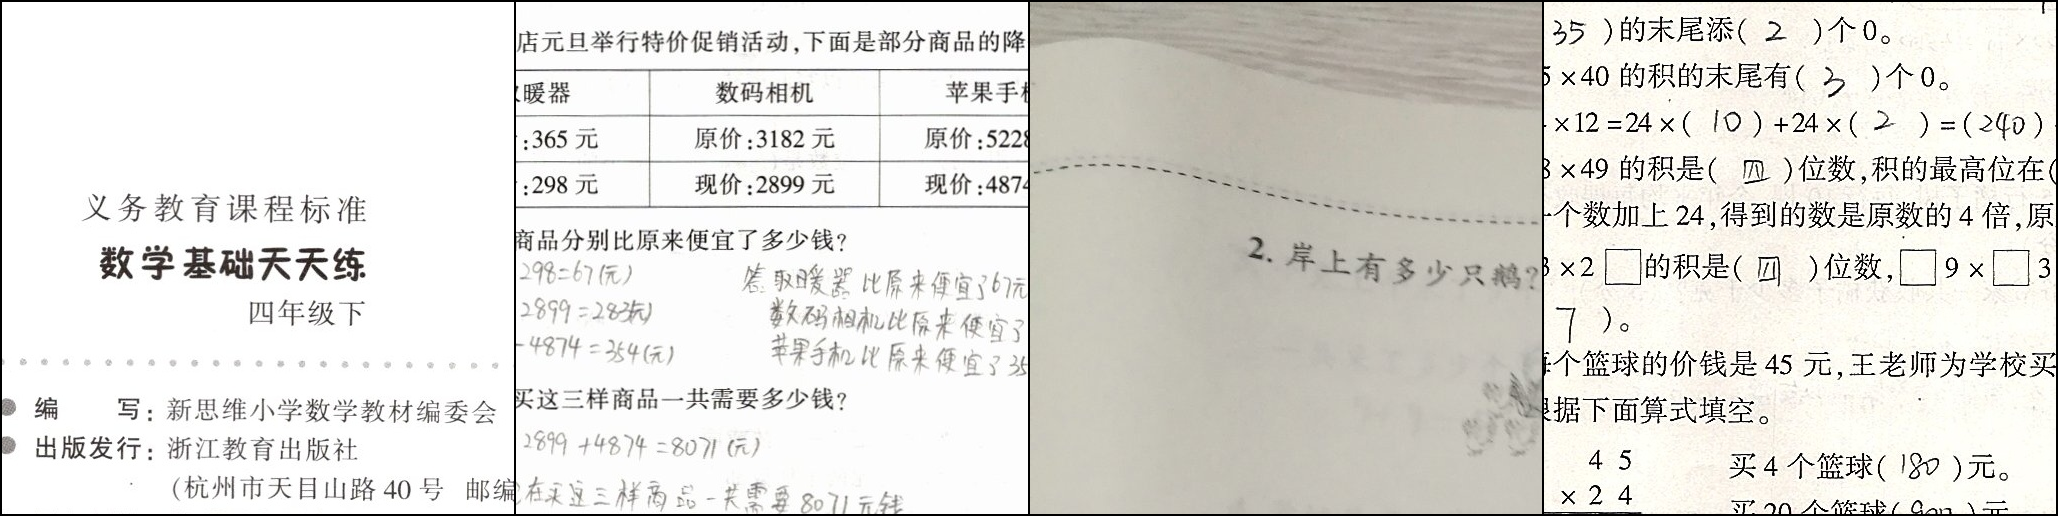 义务教育课程标准
数学基础天天练
四年级下
编 写：新思维小学数学教材编委会
出版发行：浙江教育出版社
(杭州市天目山路 40 号 邮编
店元旦举行特价促销活动,下面是部分商品的降
暖器 数码相机 苹果手机
:365 元 原价:3182 元 原价:5228
:298 元 现价:2899 元 现价:4874
商品分别比原来便宜了多少钱?
298=67(元) 答:取暖器比原来便宜了67元
2899=283(元) 数码相机比原来便宜了
-4874=354(元) 苹果手机比原来便宜了35
买这三样商品一共需要多少钱?
2899+4874=8071(元)
在买这三样商品一共需要8071元钱
2. 岸上有多少只鹅?
35 )的末尾添( 2 )个 0。
5×40 的积的末尾有( 3 )个 0。
×12=24×( 10 )+24×( 2 )=(240)
8×49 的积是( 四 )位数,积的最高位在(
一个数加上 24,得到的数是原数的 4 倍,原
3×2□的积是( 四 )位数,□9×□3
7 )。
每个篮球的价钱是 45 元,王老师为学校买
根据下面算式填空。
4 5 买 4 个篮球( 180 )元。
×2 4 买 20 个篮球( 900 )元